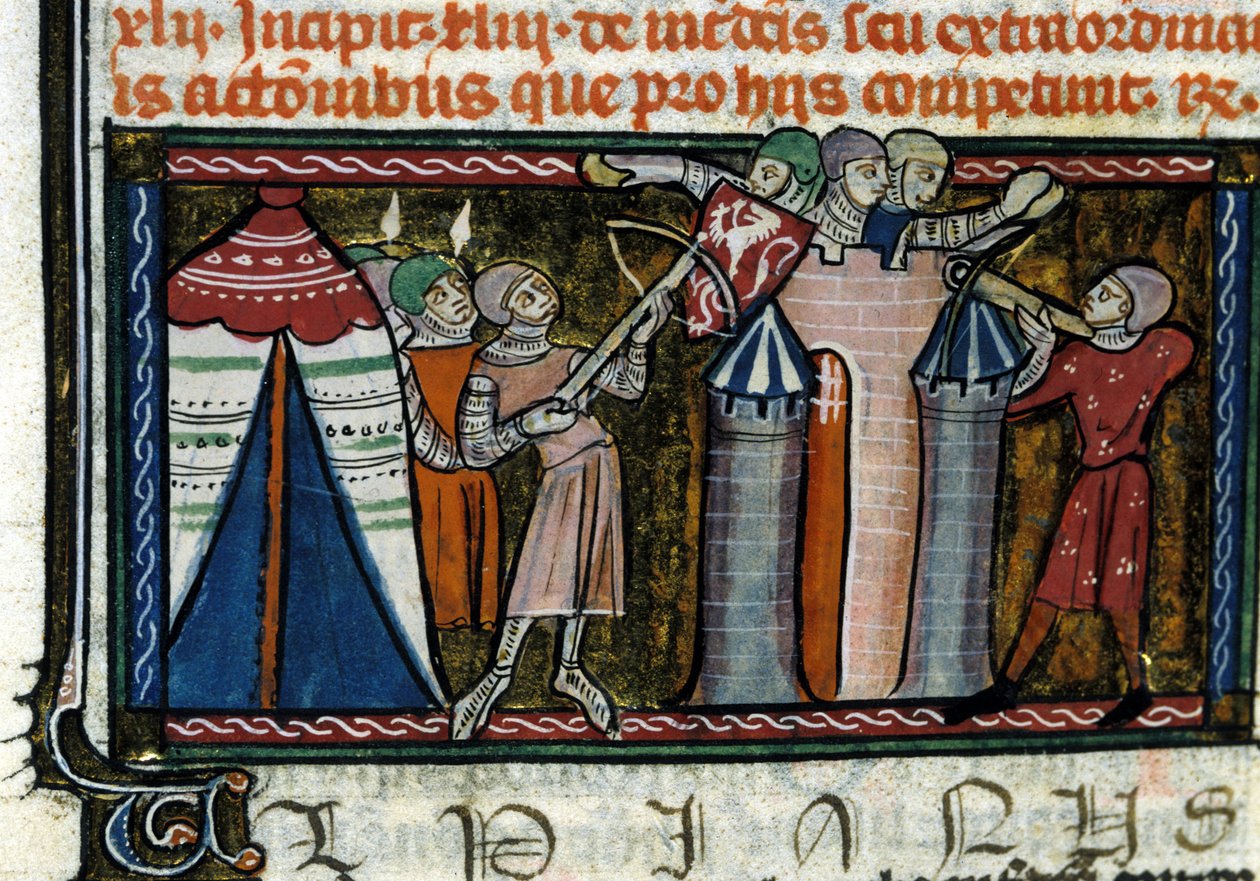 xlij. Incipit. xliij. de int̄dc̄is seu extraordinar
is actōnibus que pro hijs competunt. Rx.
ULPIANUS